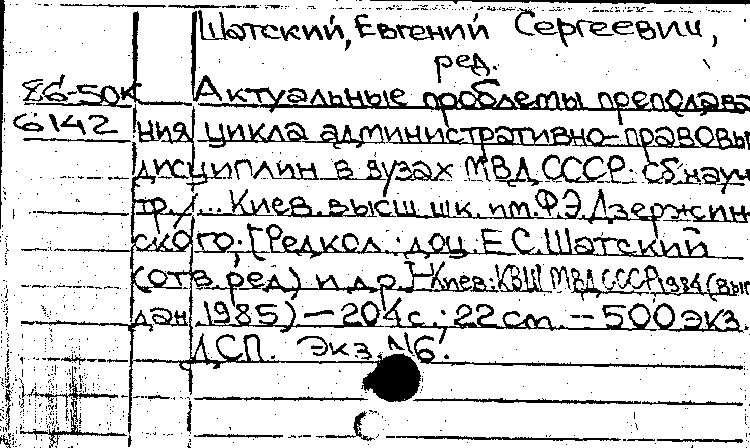 Шатский, Евгений Сергеевич,
ред.
86-50к Актуальные проблемы преподава
6142 ния цикла административно-правовы
дисциплин в вузах МВД СССР: сб. науч
тр. / ... Киев. высш. шк. им. Ф.Э. Дзержин
ского; [Редкол.: доц. Е.С. Шатский
(отв. ред) и др.] - Киев: КВШ МВД СССР, 1984 (вып
дан. 1985) - 204 с.; 22 cm. - 500 экз.
ДСП. Экз. №6.